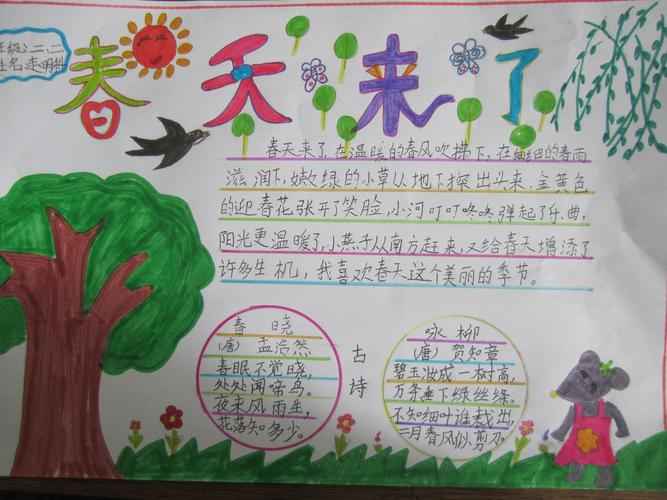 年级:二、二
姓名:
春天来了
春天来了,在温暖的春风吹拂下,在细细的春雨
滋润下,嫩绿的小草从地下探出头来,金黄色
的迎春花张开了笑脸,小河叮叮咚咚弹起了乐曲,
阳光更温暖了,小燕子从南方赶来,又给春天增添了
许多生机,我喜欢春天这个美丽的季节。
春晓
(唐) 孟浩然
春眠不觉晓,
处处闻啼鸟。
夜来风雨生,
花落知多少。
古诗
咏柳
(唐) 贺知章
碧玉妆成一树高,
万条垂下绿丝绦。
不知细叶谁裁出,
二月春风似剪刀。